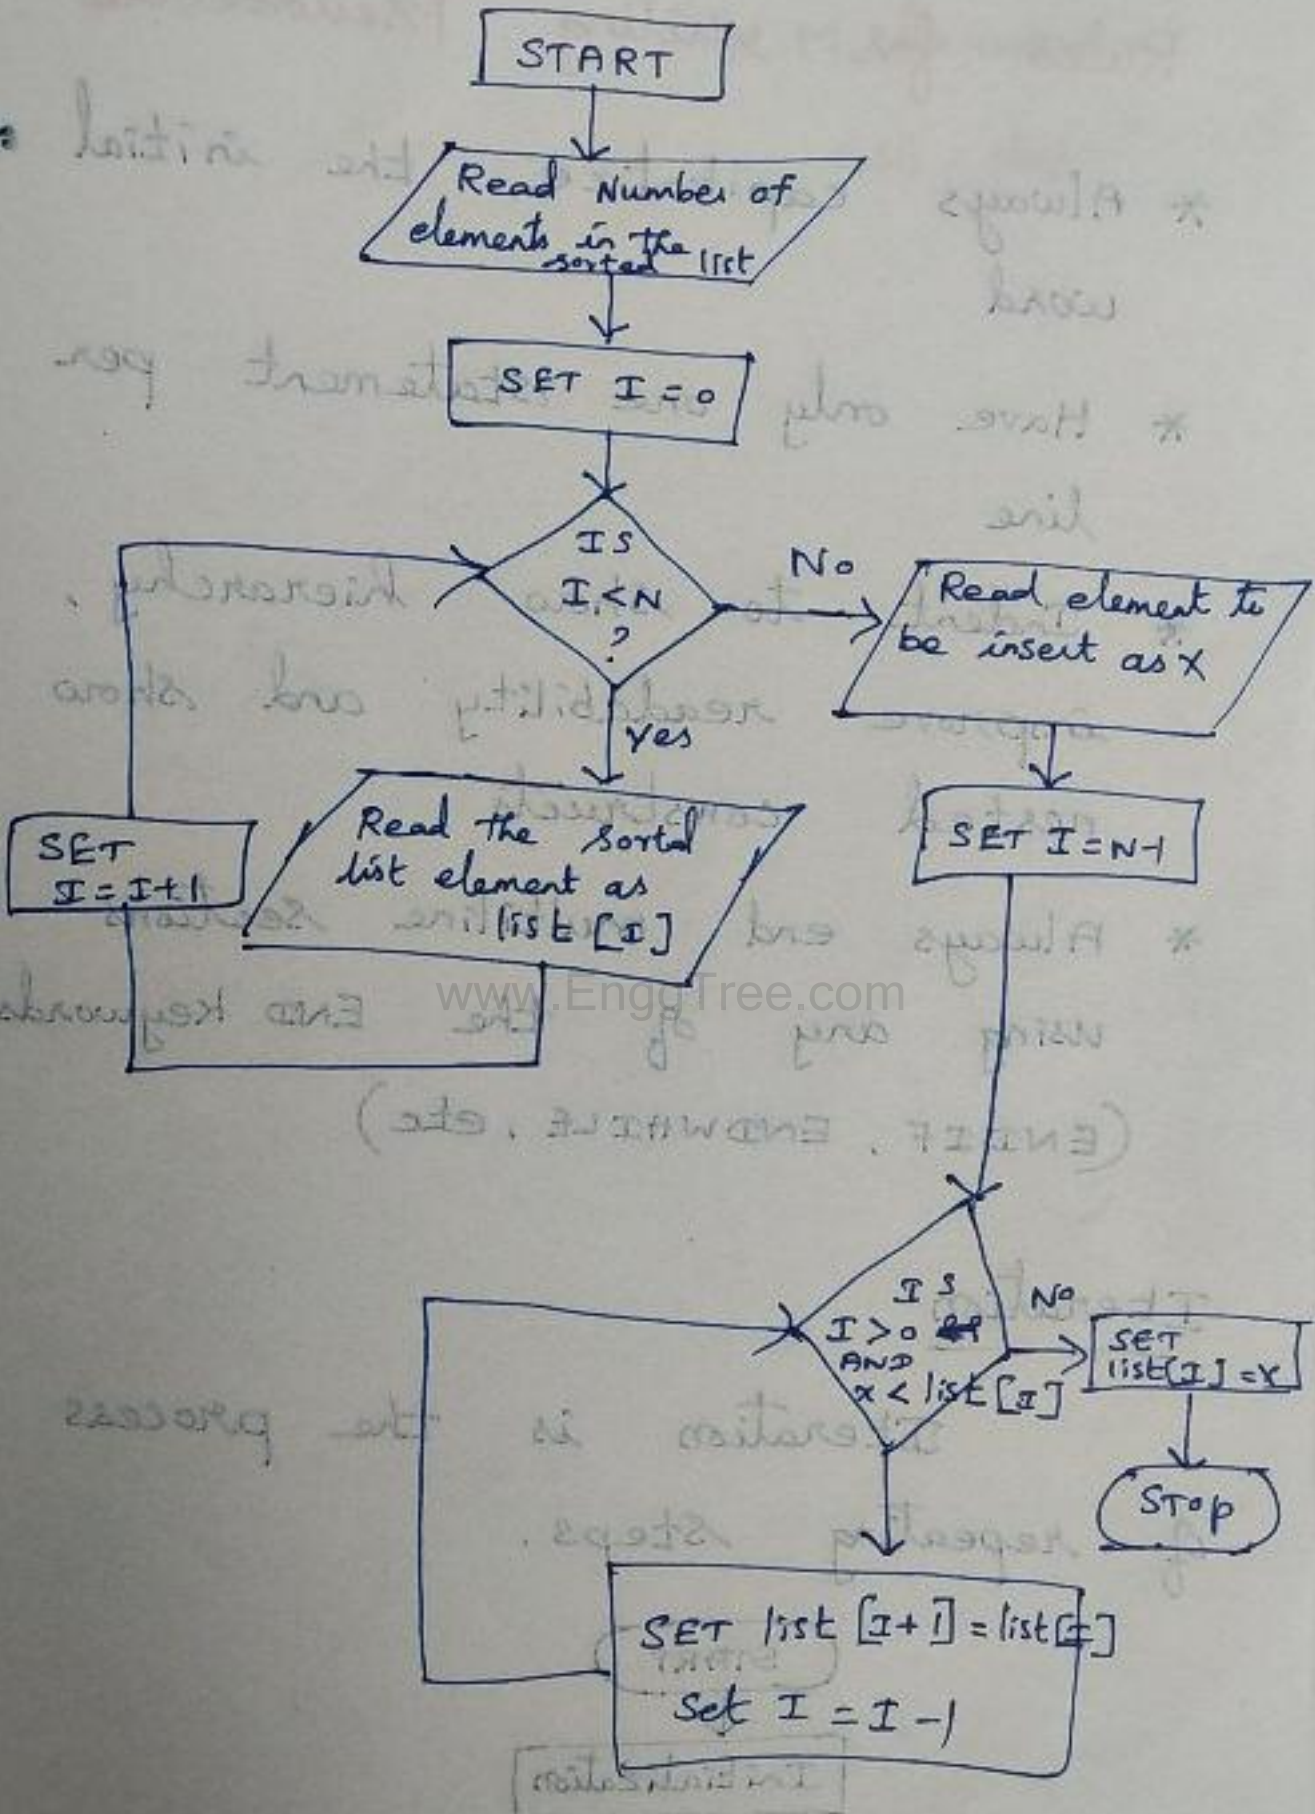 START
Read Number of
elements in the
sorted list
SET I = 0
IS
I < N
?
No
Read element to
be insert as X
Yes
Read the sorted
list element as
list [I]
SET
I = I + 1
SET I = N-1
www.EnggTree.com
IS
I > 0
AND
x < list [I]
No
SET
list[I] = x
Stop
SET list [I+1] = list[I]
Set I = I - 1